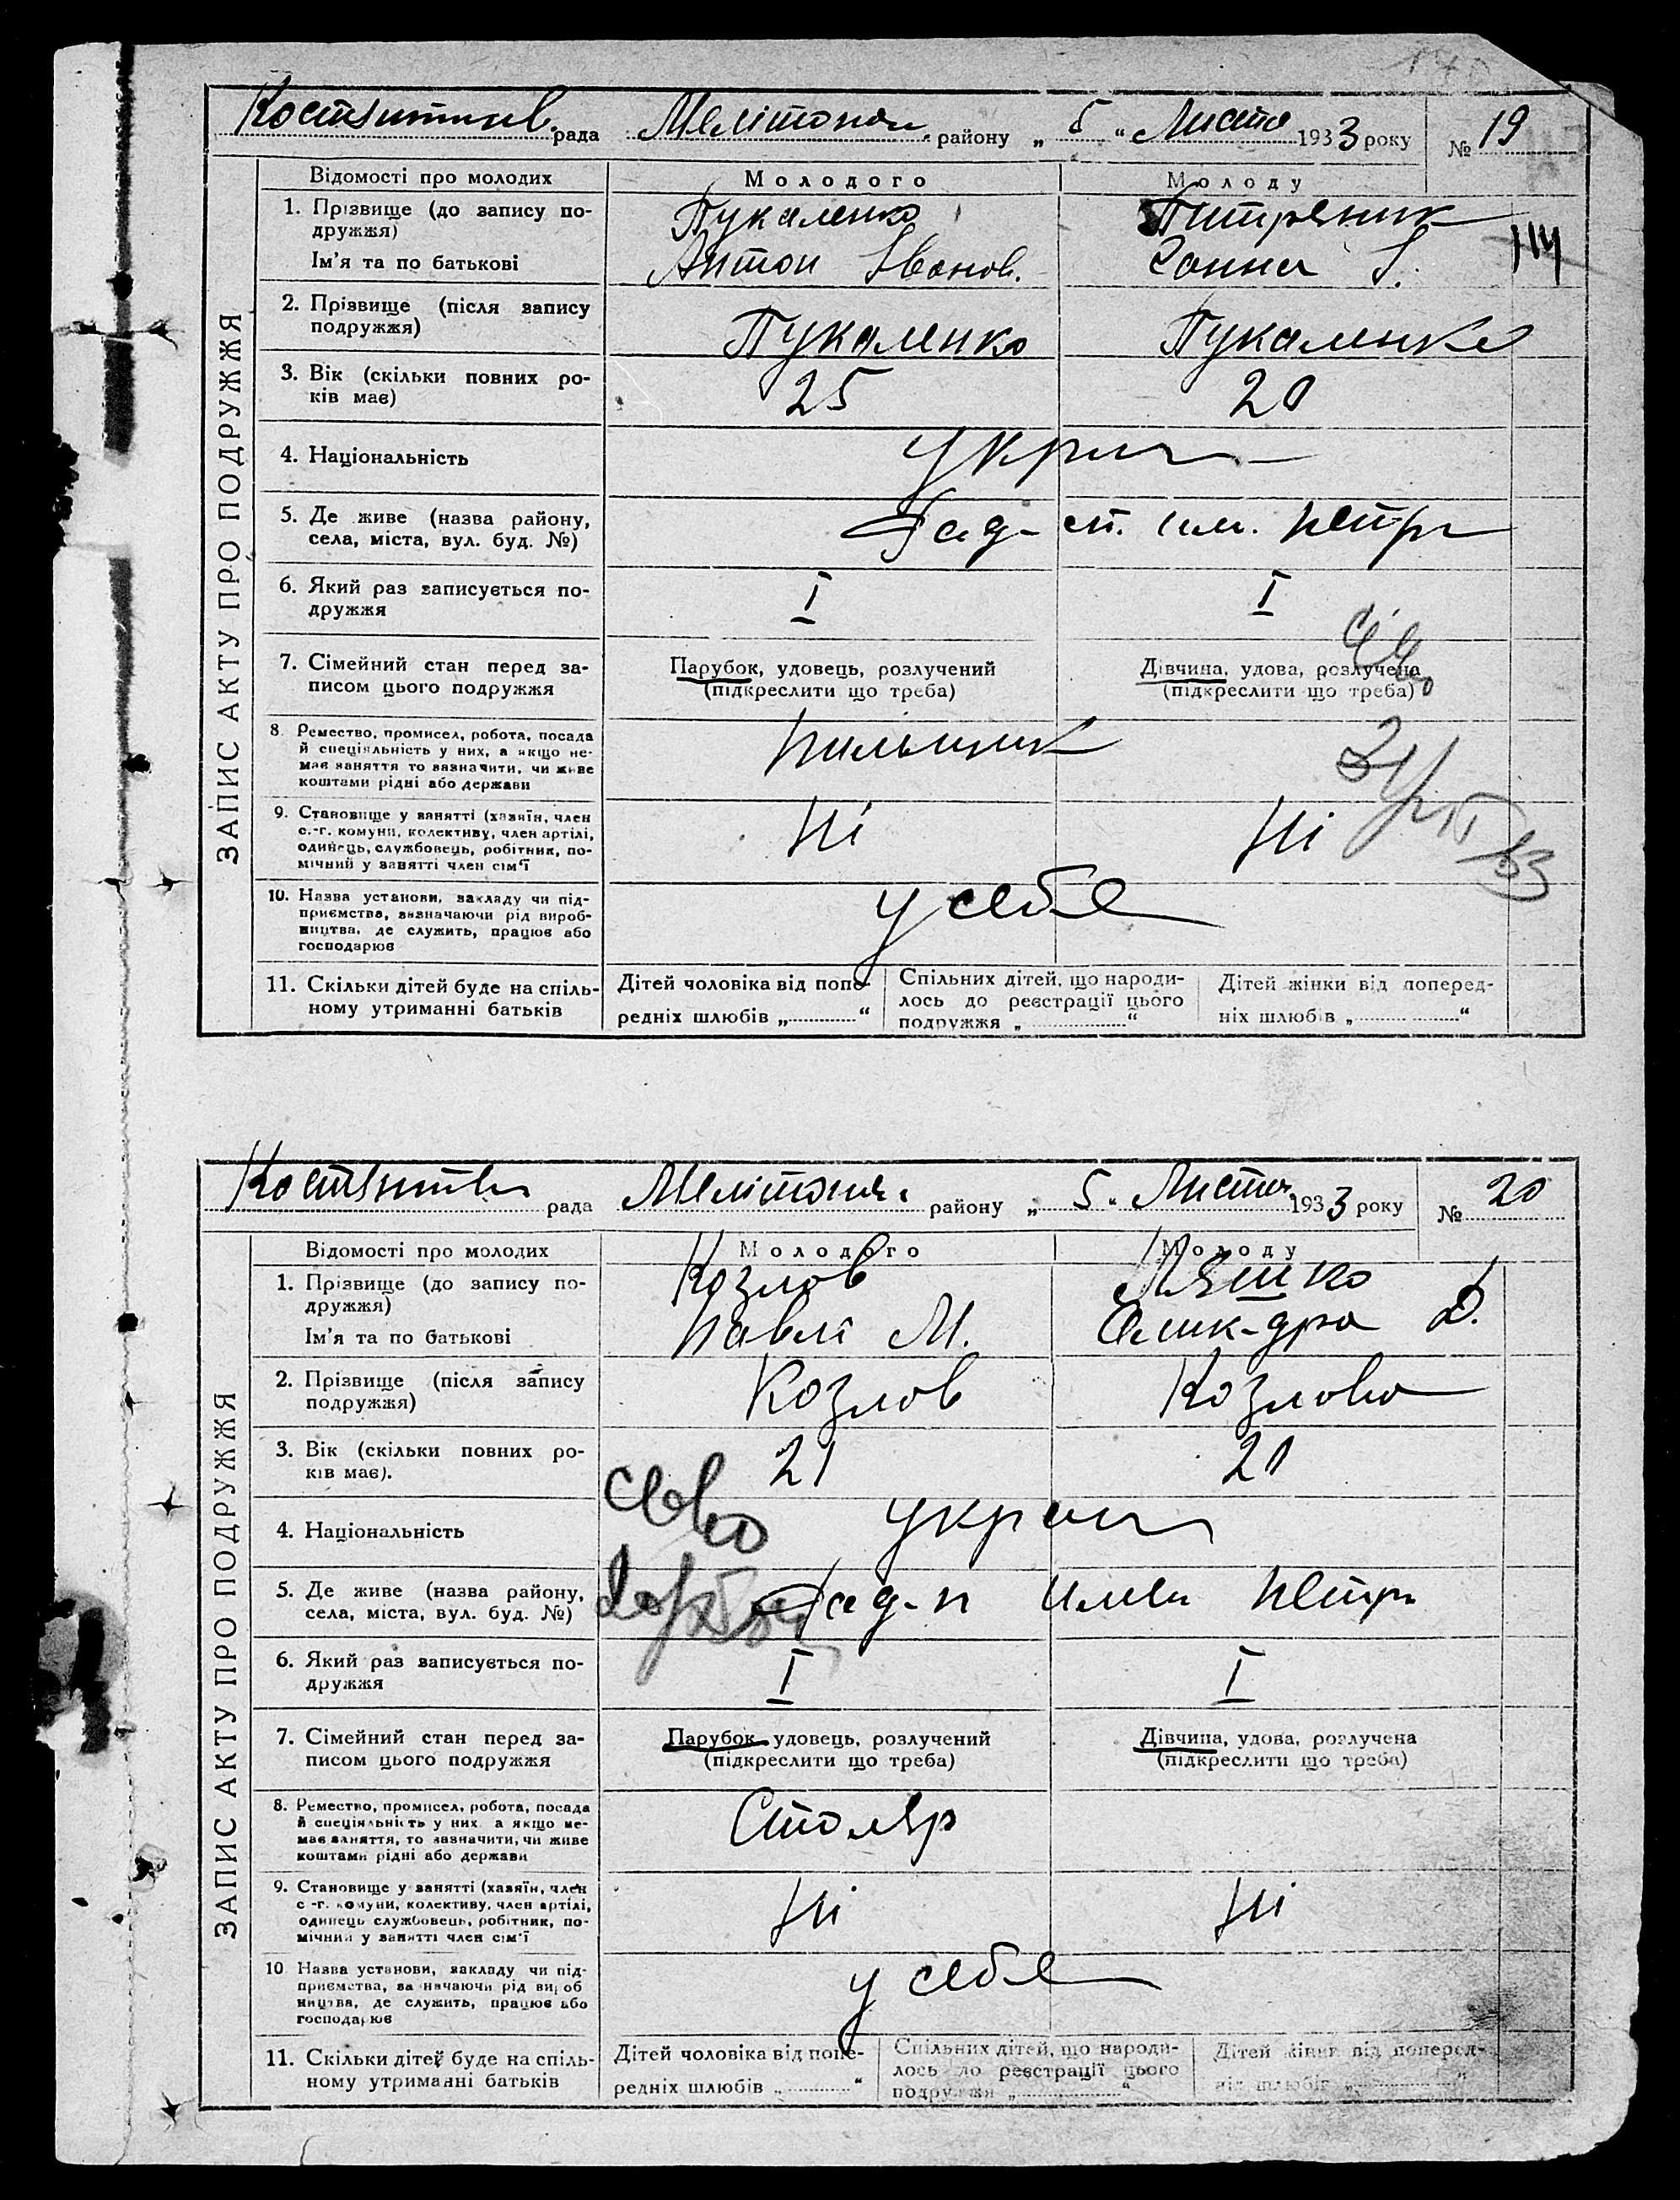 рада Мелітопол. району „ 5 “ Листо 1933 року № 19
ЗАПИС АКТУ ПРО ПОДРУЖЖЯ
Відомості про молодих Молодого Молоду
1. Прізвище (до запису по- Пукаленко
дружжя)
Ім'я та по батькові Антон Іванов. Ганна І.
2. Прізвище (після запису
подружжя) Пукаленко Пукаленко
3. Вік (скільки повних ро-
ків має) 25 20
4. Національність Украї
5. Де живе (назва району,
села, міста, вул. буд. №) ст. ім. Петр
6. Який раз записується по- I I
дружжя
7. Сімейний стан перед за- Парубок, удовець, розлучений Дівчина, удова, розлучена
писом цього подружжя (підкреслити що треба) (підкреслити що треба)
8. Ремество, промисел, робота, посада
й спеціяльність у них, а якщо не- пильщик
має заняття то зазначити, чи живе
коштами рідні або держави
9. Становище у занятті (хазяїн, член
с.-г. комуни, колективу, член артілі,
одинець, службовець, робітник, по- Ні Ні
мічний у занятті член сім'ї
10. Назва установи, закладу чи під-
приємства, зазначаючи рід вироб- у себе
ництва, де служить, працює або
господарює
11. Скільки дітей буде на спіль- Дітей чоловіка від попе- Спільних дітей, що народи- Дітей жінки від поперед-
ному утриманні батьків редніх шлюбів „ “ лось до реєстрації цього ніх шлюбів „ “
подружжя „ “
рада Мелітопол. району „ 5 “ Листо 1933 року № 20
ЗАПИС АКТУ ПРО ПОДРУЖЖЯ
Відомості про молодих Молодого Молоду
1. Прізвище (до запису по- Козлов Ляшко
дружжя)
Ім'я та по батькові Павло М. Олик-дра Ф.
2. Прізвище (після запису
подружжя) Козлов Козлова
3. Вік (скільки повних ро-
ків має). 21 20
4. Національність Украї
5. Де живе (назва району,
села, міста, вул. буд. №) Петр
6. Який раз записується по- I I
дружжя
7. Сімейний стан перед за- Парубок, удовець, розлучений Дівчина, удова, розлучена
писом цього подружжя (підкреслити що треба) (підкреслити що треба)
8. Ремество, промисел, робота, посада
й спеціяльність у них а якщо не- Столяр
має заняття, то зазначити, чи живе
коштами рідні або держави
9. Становище у занятті (хазяїн, член
с-г. комуни, колективу, член артілі,
одинець службовець, робітник, по- Ні Ні
мічний у занятті член сім'ї
10 Назва установи, закладу чи під-
приємства, зазначаючи рід вироб у себе
ництва, де служить, працює або
господарює
11. Скільки дітей буде на спіль- Дітей чоловіка від попе- Спільних дітей, що народи- Дітей жінки від поперед-
ному утриманні батьків редніх шлюбів „ “ лось до реєстрації цього ніх шлюбів „ “
подружжя „ “